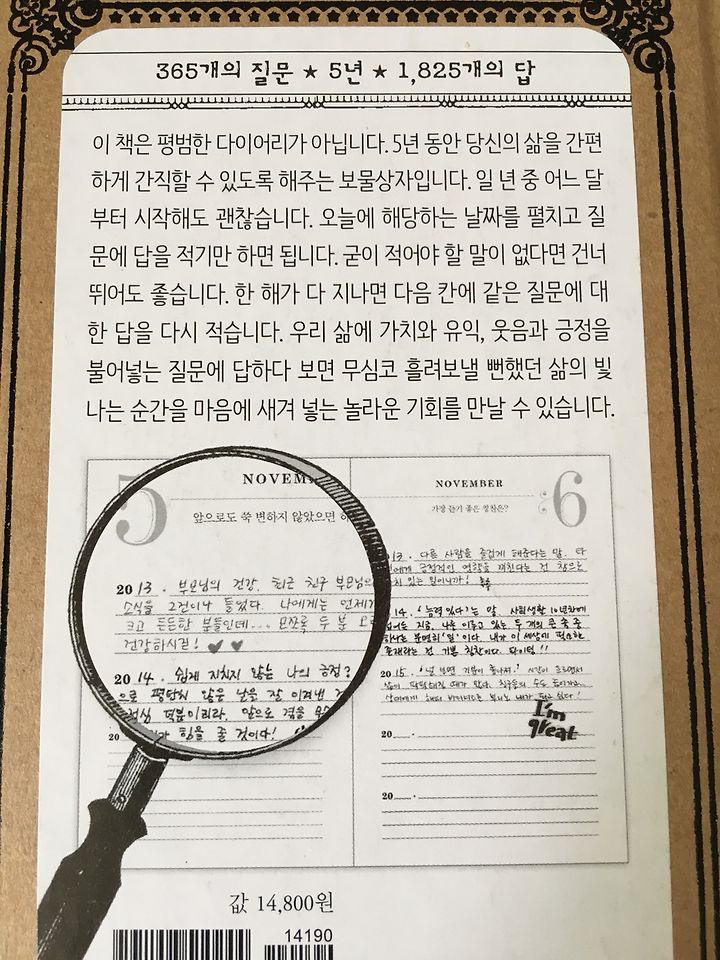 365개의 질문 ★ 5년 ★ 1,825개의 답
이 책은 평범한 다이어리가 아닙니다. 5년 동안 당신의 삶을 간편
하게 간직할 수 있도록 해주는 보물상자입니다. 일 년 중 어느 달
부터 시작해도 괜찮습니다. 오늘에 해당하는 날짜를 펼치고 질
문에 답을 적기만 하면 됩니다. 굳이 적어야 할 말이 없다면 건너
뛰어도 좋습니다. 한 해가 다 지나면 다음 칸에 같은 질문에 대
한 답을 다시 적습니다. 우리 삶에 가치와 유익, 웃음과 긍정을
불어넣는 질문에 답하다 보면 무심코 흘려보낼 뻔했던 삶의 빛
나는 순간을 마음에 새겨 넣는 놀라운 기회를 만날 수 있습니다.
5 NOVEM
앞으로도 쭉 변하지 않았으면
2013. 부모님의 건강. 최근 친구 부모님의
소식을 그전이나 들었다. 나에게는 언제가
크고 든든한 분들인데... 모쪼록 두 분 모
건강하시길!
2014. 쉽게 지치지 않는 나의 긍정?
으로 평탄치 않은 날을 잘 이겨낸
덕분이리라. 앞으로 겪을
힘을 줄 것이다!
20
NOVEMBER 6
가장 듣기 좋은 칭찬은?
13. 다른 사람을 즐겁게 해준다는 말. 타
에게 긍정적인 영향을 끼친다는 건 참으로
치 있는 일이니까!
14. '능력 있다'는 말. 사회생활 10년차에
지금, 나를 이루고 있는 두 개의 큰 축 중
하나는 분명히 '일'이다. 내가 이 세상에 필요한
존재라는 건 기쁨 칭찬이다. 다이얼!!
2015. '널 보면 기분이 좋아져.'
I'm
great
20
20
값 14,800원
14190